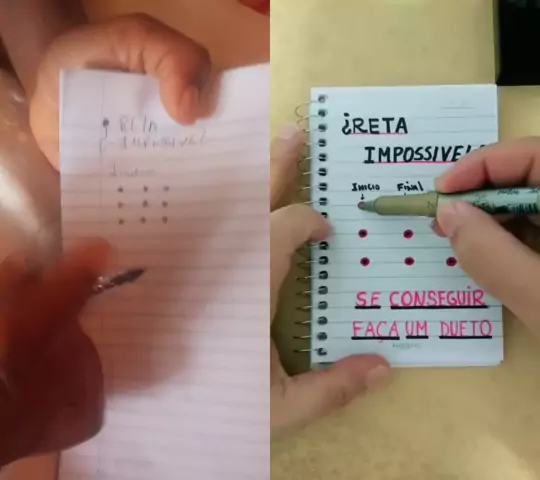 RETA
¿RETA
IMPOSSIVEL?
INICIO FiNal
SE CONSEGUIR
FAÇA UM DUETO